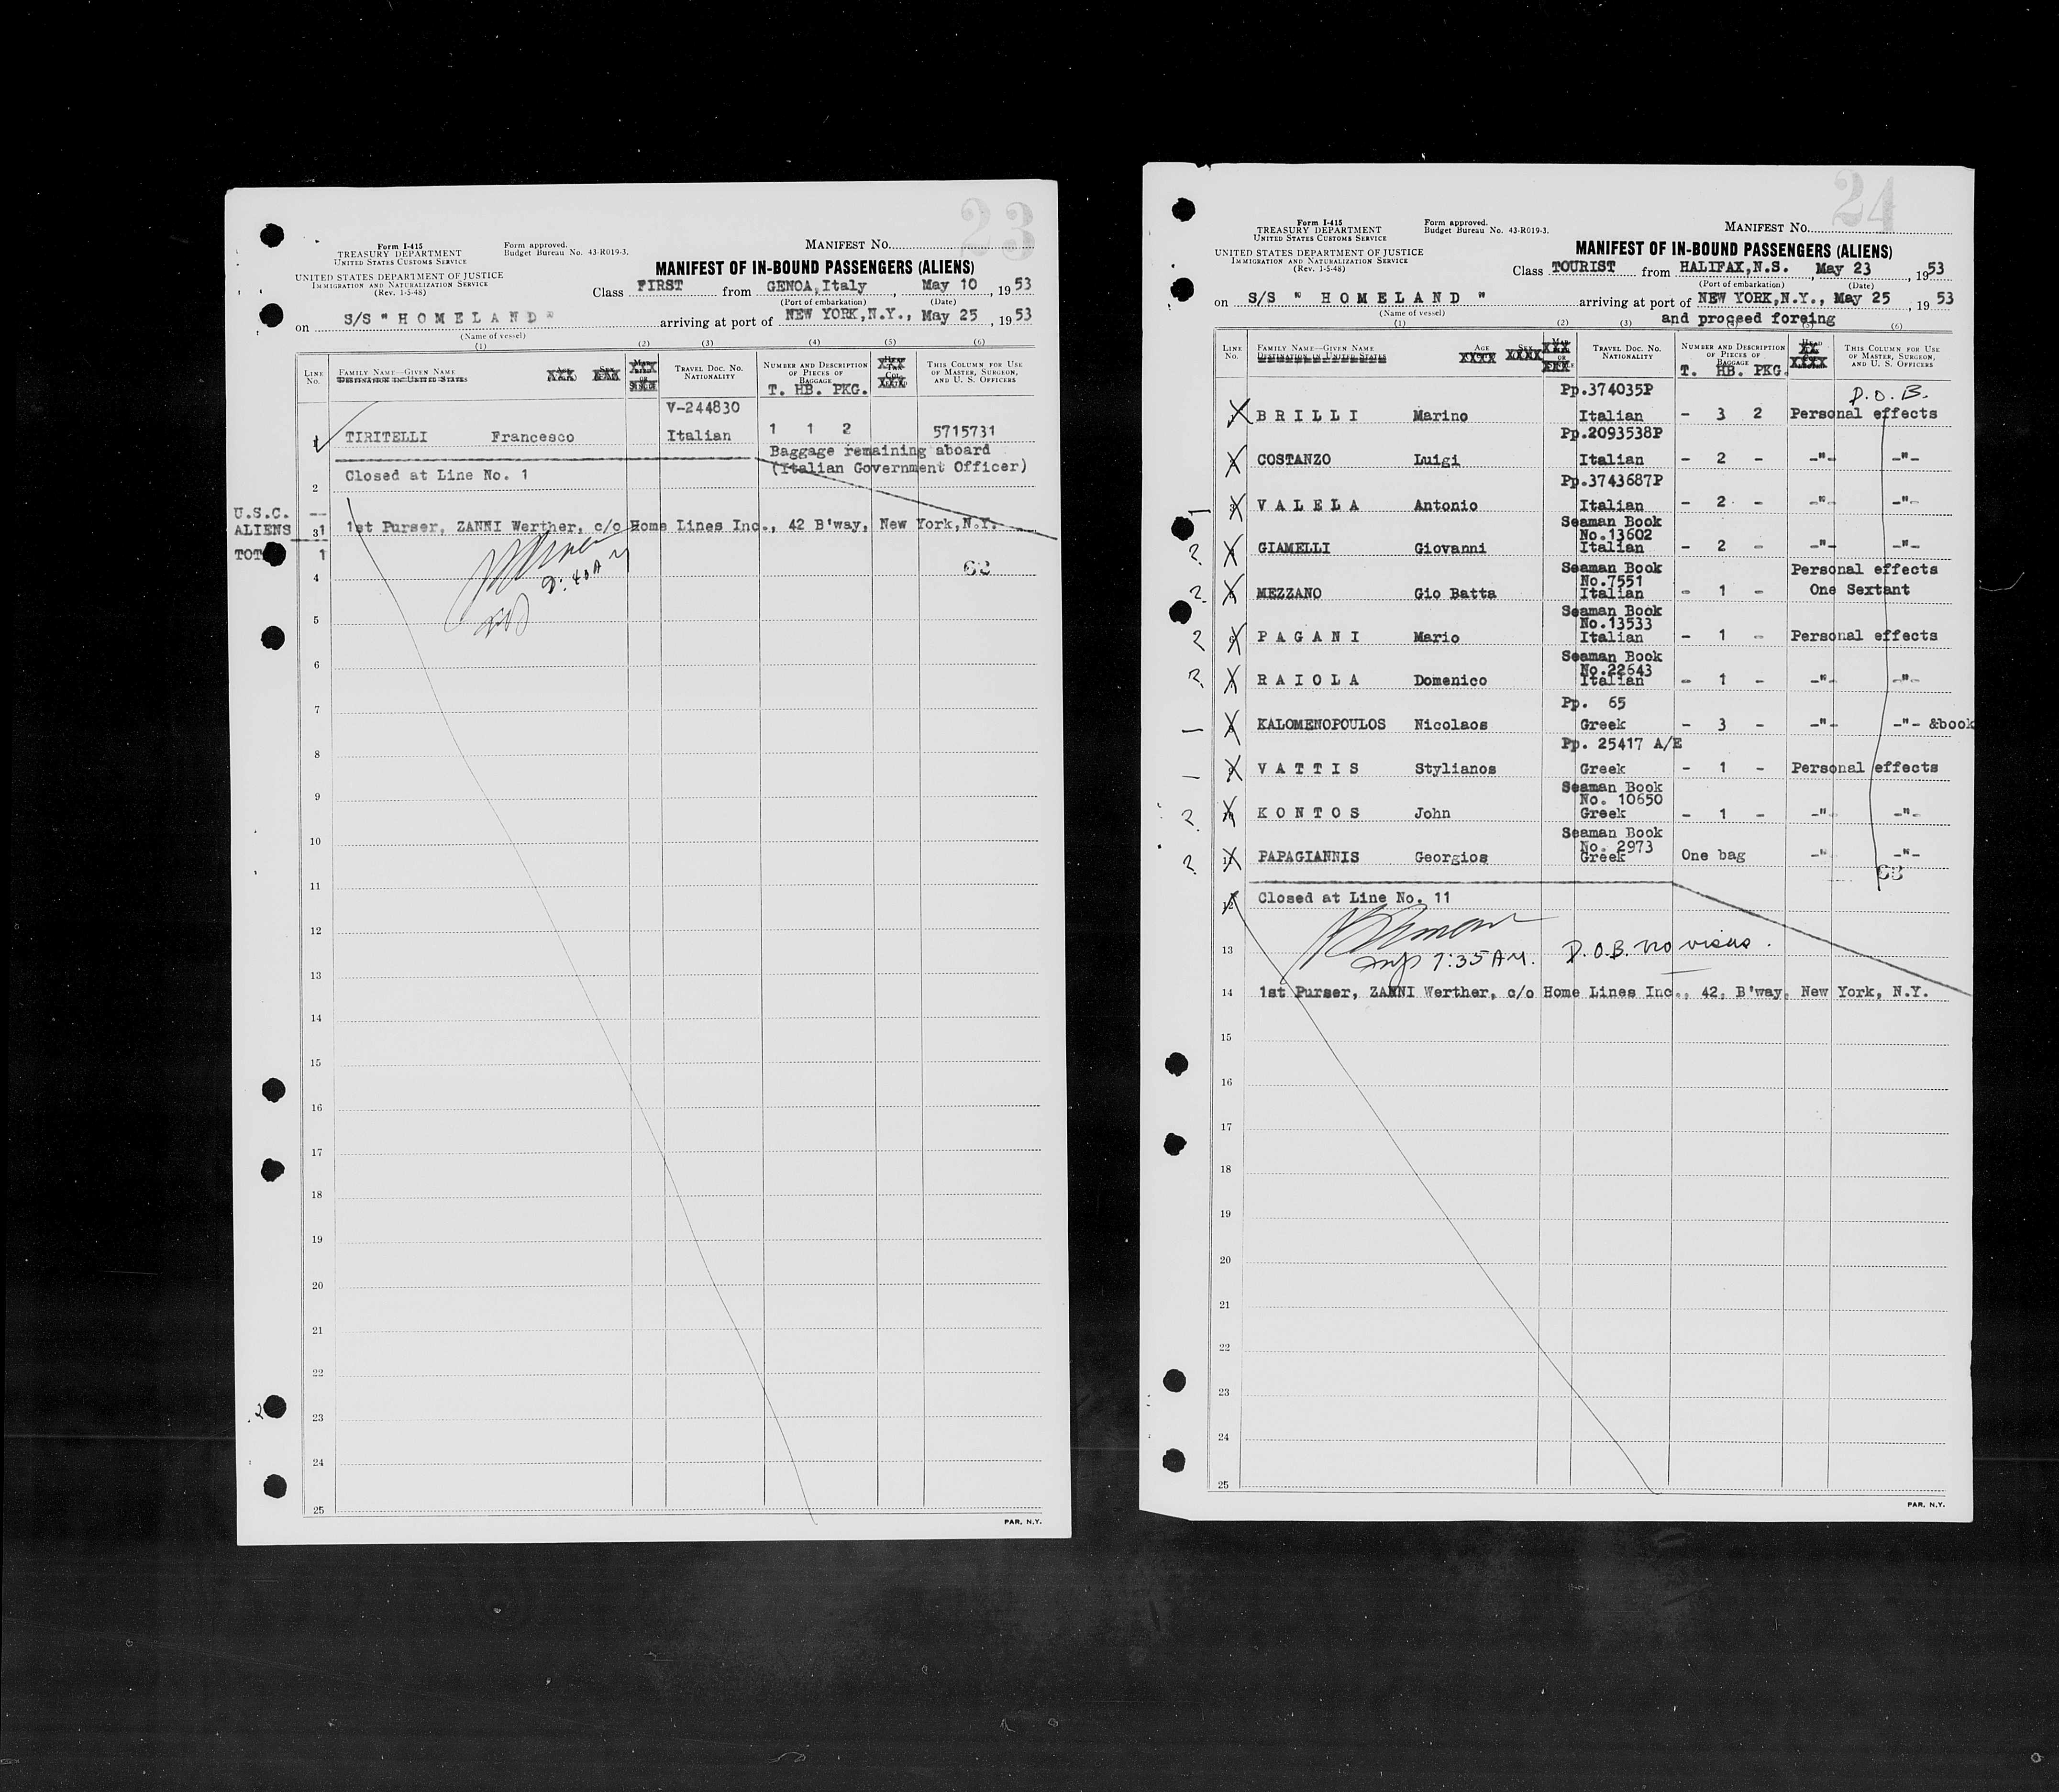 23
Form I-415
TREASURY DEPARTMENT
UNITED STATES CUSTOMS SERVICE
Form approved.
Budget Bureau No. 43-R019-3.
MANIFEST No.
UNITED STATES DEPARTMENT OF JUSTICE
IMMIGRATION AND NATURALIZATION SERVICE
(Rev. 1-5-48)
MANIFEST OF IN-BOUND PASSENGERS (ALIENS)
Class FIRST from GENOA, Italy, May 10, 1953
(Port of embarkation) (Date)
on S/S "HOMELAND" arriving at port of NEW YORK,N.Y., May 25, 1953
(Name of vessel)
(1) (2) (3) (4) (5) (6)
LINE No. FAMILY NAME—GIVEN NAME DESTINATION IN UNITED STATES TRAVEL DOC. No. NATIONALITY NUMBER AND DESCRIPTION OF PIECES OF BAGGAGE THIS COLUMN FOR USE OF MASTER, SURGEON, AND U. S. OFFICERS
T. HB. PKG.
V-244830
1 TIRITELLI Francesco Italian 1 1 2 5715731
Baggage remaining aboard
(Italian Government Officer)
2 Closed at Line No. 1
U.S.C. --
ALIENS 1
3 1st Purser, ZANNI Werther, c/o Home Lines Inc., 42 B'way, New York,N.Y.
TOT 1
9:40 AM
62
4
5
6
7
8
9
10
11
12
13
14
15
16
17
18
19
20
21
22
23
24
25
PAR. N.Y.
24
Form I-415
TREASURY DEPARTMENT
UNITED STATES CUSTOMS SERVICE
Form approved.
Budget Bureau No. 43-R019-3.
MANIFEST No.
UNITED STATES DEPARTMENT OF JUSTICE
IMMIGRATION AND NATURALIZATION SERVICE
(Rev. 1-5-48)
MANIFEST OF IN-BOUND PASSENGERS (ALIENS)
Class TOURIST from HALIFAX,N.S. May 23, 1953
(Port of embarkation) (Date)
on S/S "HOMELAND" arriving at port of NEW YORK,N.Y., May 25, 1953
(Name of vessel)
and proceed foreing
(1) (2) (3) (6)
LINE No. FAMILY NAME—GIVEN NAME DESTINATION IN UNITED STATES AGE SEX TRAVEL DOC. No. NATIONALITY NUMBER AND DESCRIPTION OF PIECES OF BAGGAGE HEAD THIS COLUMN FOR USE OF MASTER, SURGEON, AND U. S. OFFICERS
T. HB. PKG.
Pp.374035P D.O.B.
1 BRILLI Marino Italian - 3 2 Personal effects
Pp.2093538P
2 COSTANZO Luigi Italian - 2 - -"- -"-
Pp.3743687P
1 3 VALELA Antonio Italian - 2 - -"- -"-
Seaman Book
No.13602
2 4 GIAMELLI Giovanni Italian - 2 - -"- -"-
Seaman Book Personal effects
No.7551
2 5 MEZZANO Gio Batta Italian - 1 - One Sextant
Seaman Book
No.13533
2 6 PAGANI Mario Italian - 1 - Personal effects
Seaman Book
No.22643
2 7 RAIOLA Domenico Italian - 1 - -"- -"-
Pp. 65
1 8 KALOMENOPOULOS Nicolaos Greek - 3 - -"- -"- &book
Pp. 25417 A/E
1 9 VATTIS Stylianos Greek - 1 - Personal effects
Seaman Book
No. 10650
2 10 KONTOS John Greek - 1 - -"- -"-
Seaman Book
No. 2973
2 11 PAPAGIANNIS Georgios Greek One bag -"- -"-
63
12 Closed at Line No. 11
13 7:35 AM. D.O.B. no visas.
14 1st Purser, ZANNI Werther, c/o Home Lines Inc., 42, B'way, New York, N.Y.
15
16
17
18
19
20
21
22
23
24
25
PAR. N.Y.